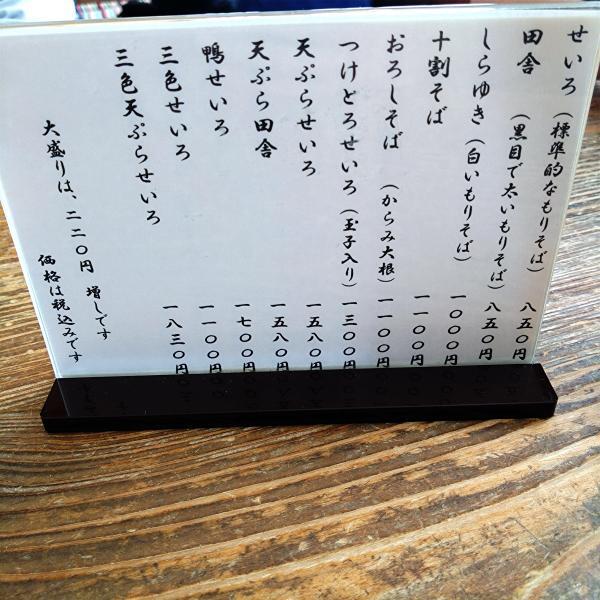 せいろ（標準的なもりそば）八五〇円
田舎（黒目で太いもりそば）八五〇円
しらゆき（白いもりそば）一〇〇〇円
十割そば 一一〇〇円
おろしそば（からみ大根）一一〇〇円
つけとろせいろ（玉子入り）一三〇〇円
天ぷらせいろ 一五八〇円
天ぷら田舎 一五八〇円
鴨せいろ 一七〇〇円
三色せいろ 一一〇〇円
三色天ぷらせいろ 一八三〇円
大盛りは、二二〇円 増しです
価格は税込みです